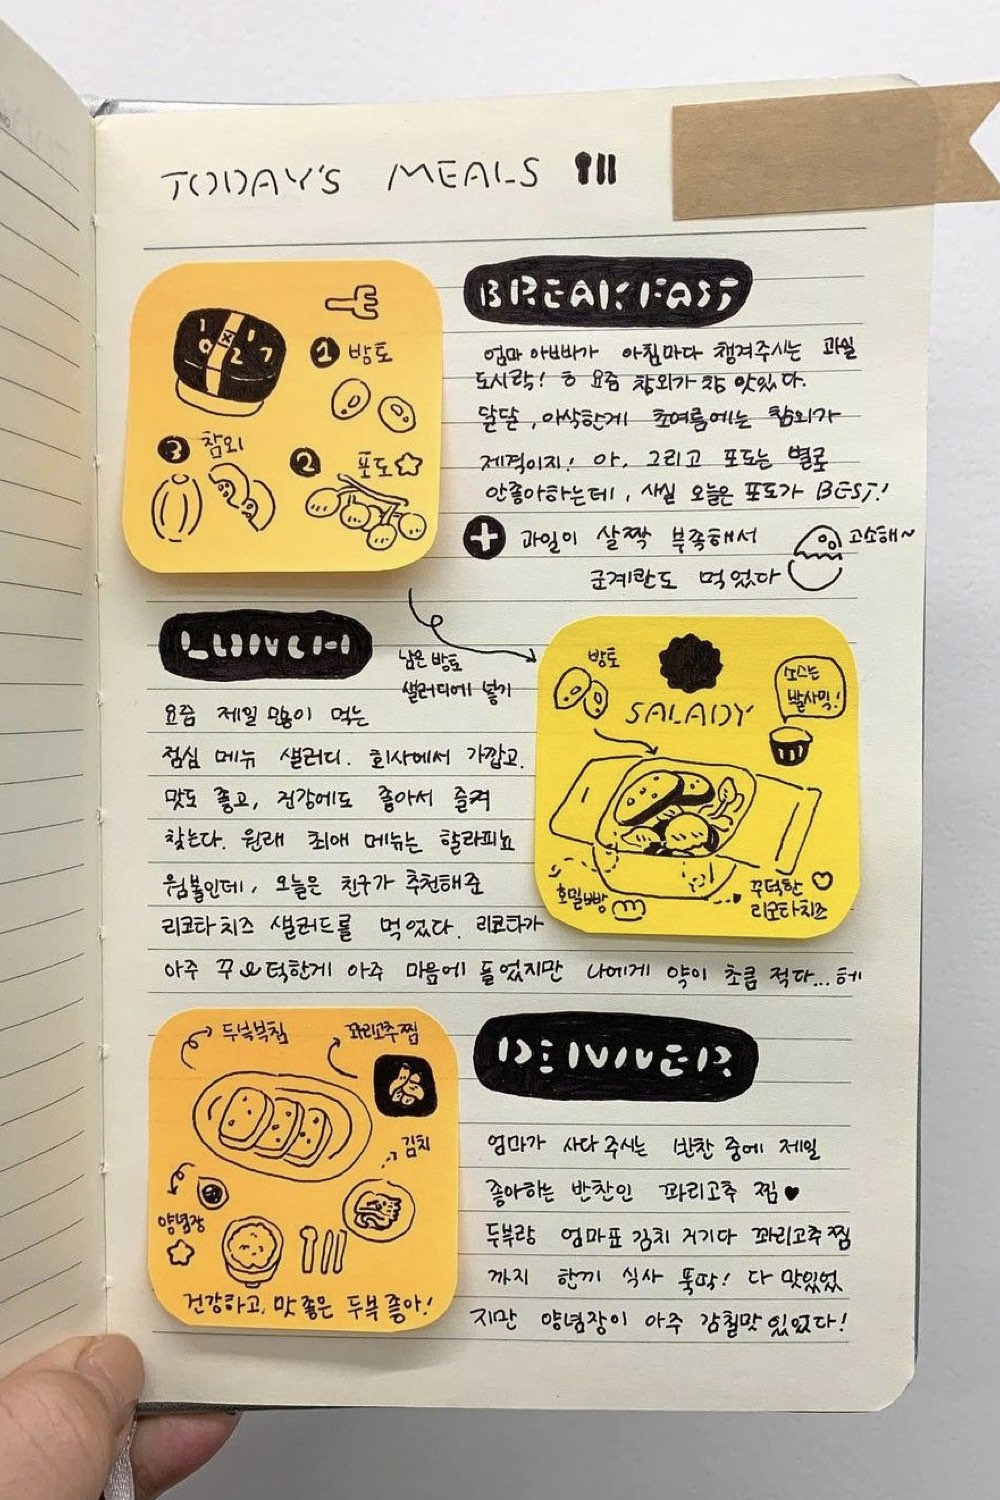 TODAY'S MEALS
BREAKFAST
1 방토
3 참외
2 포도
엄마 아빠가 아침마다 챙겨주시는 과일
도시락! ㅎ 요즘 참외가 참 맛있다.
달달, 아삭한게 초여름에는 참외가
제격이지! 아, 그리고 포도는 별로
안좋아하는데, 사실 오늘은 포도가 BEST!
+ 과일이 살짝 부족해서
군계란도 먹었다
고소해~
LUNCH
남은 방토
샐러디에 넣기
요즘 제일 많이 먹는
점심 메뉴 샐러디. 회사에서 가깝고.
맛도 좋고, 건강에도 좋아서 즐겨
찾는다. 원래 최애 메뉴는 할라피뇨
웜볼인데, 오늘은 친구가 추천해준
리코타치즈 샐러드를 먹었다. 리코타가
아주 꾸덕한게 아주 마음에 들었지만 나에게 양이 초큼 적다... 헤
방토
SALADY
소스는
발사믹!
호밀빵
꾸덕한
리코타치즈
DINNER
두부부침
꽈리고추찜
김치
양념장
건강하고, 맛 좋은 두부 좋아!
엄마가 사다 주시는 반찬 중에 제일
좋아하는 반찬인 꽈리고추 찜♥
두부랑 엄마표 김치 거기다 꽈리고추 찜
까지 한끼 식사 뚝딱! 다 맛있었
지만 양념장이 아주 감칠맛 있었다!